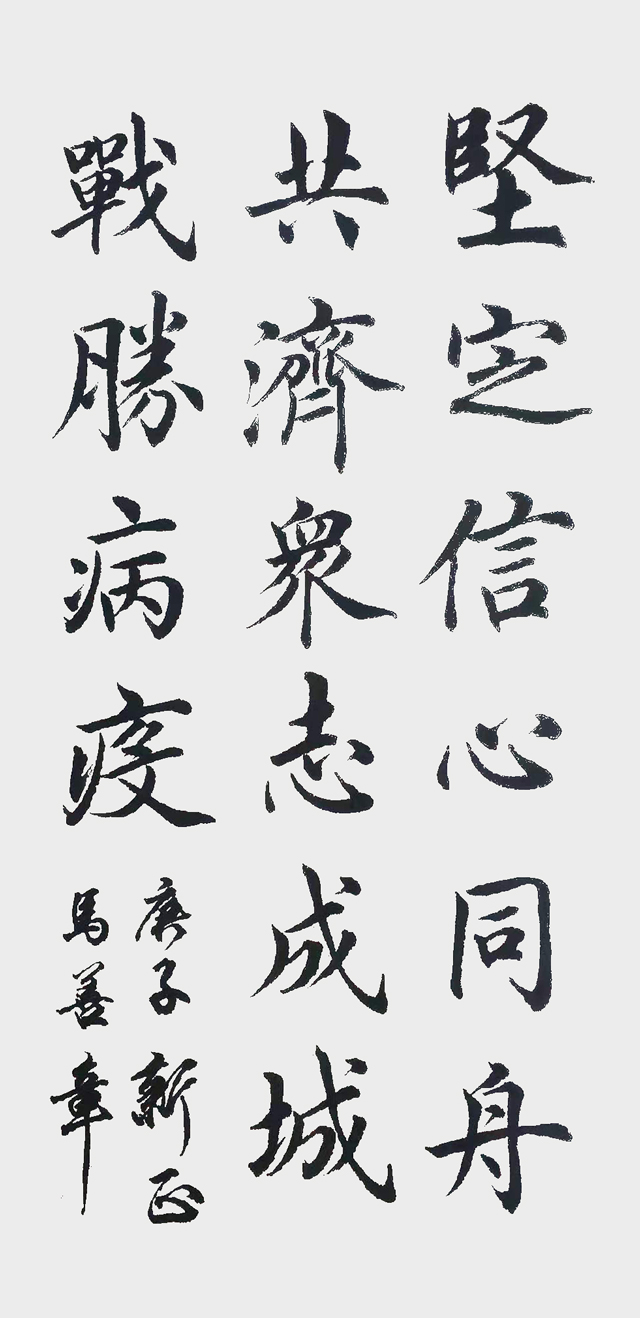 堅定信心同舟
共濟衆志成城
戰勝病疫
庚子新正
馬善章